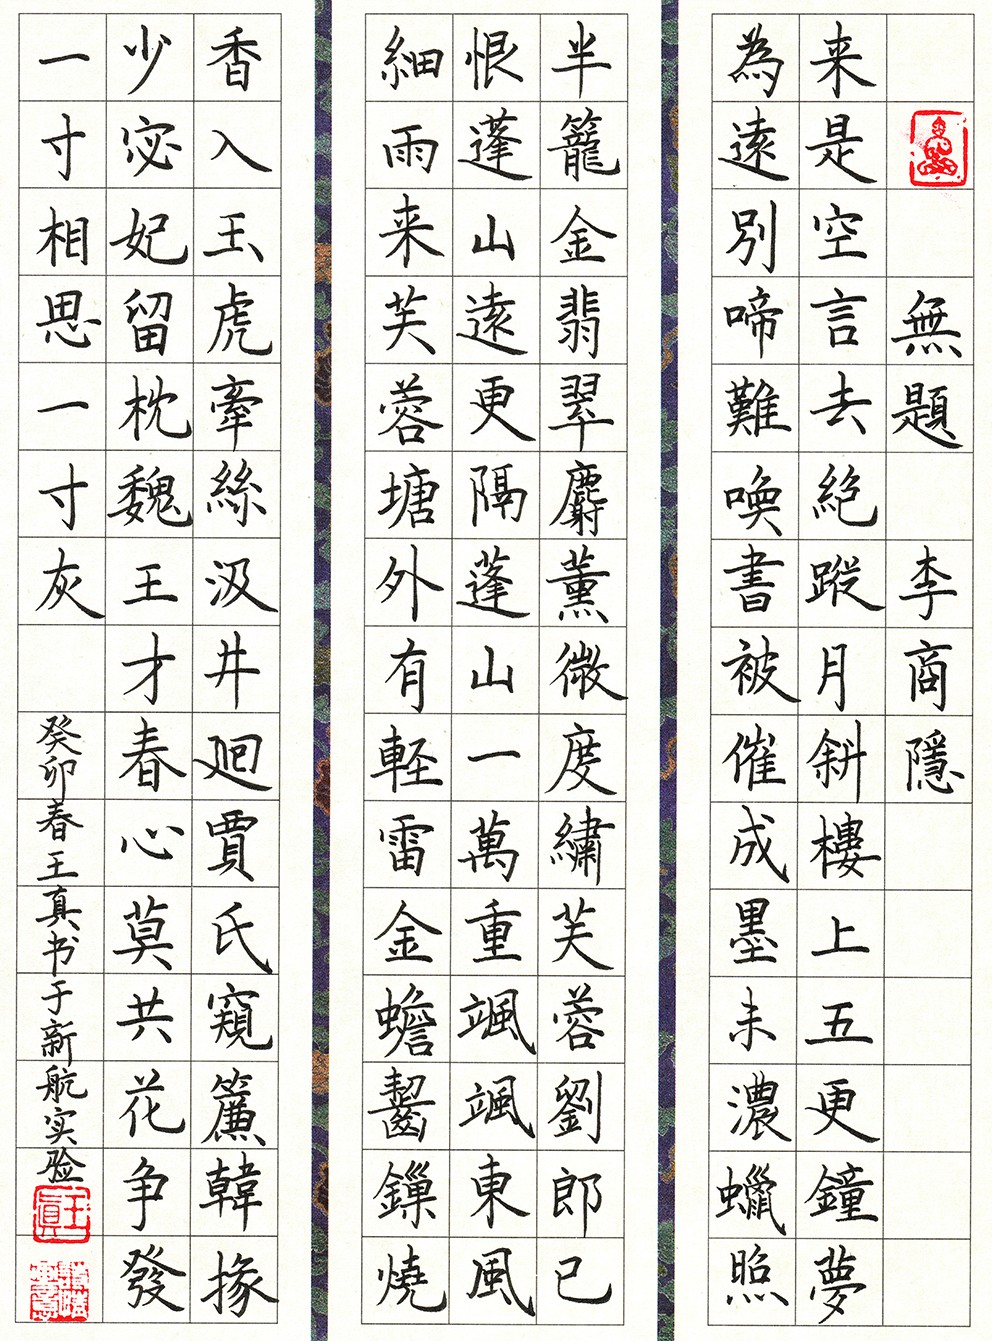 無題 李商隱
来是空言去絕蹤月斜樓上五更鐘夢
為遠別啼難喚書被催成墨未濃蠟照
半籠金翡翠麝薰微度繡芙蓉劉郎已
恨蓬山遠更隔蓬山一萬重颯颯東風
細雨来芙蓉塘外有軽雷金蟾齧鏁燒
香入玉虎牽絲汲井迴賈氏窺簾韓掾
少宓妃留枕魏王才春心莫共花争發
一寸相思一寸灰
癸卯春王真书于新航实验
王真